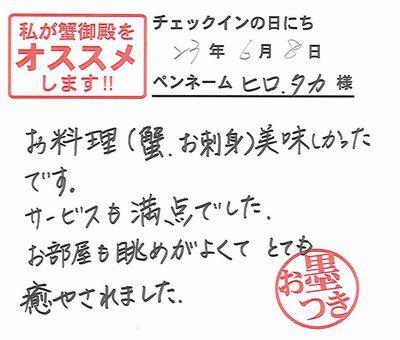 私が蟹御殿を
オススメ
します!!
チェックインの日にち
23年6月8日
ペンネーム ヒロ.タカ 様
お料理(蟹.お刺身)美味しかった
です。
サービスも満点でした.
お部屋も眺めがよくてとても
癒やされました.
お墨つき